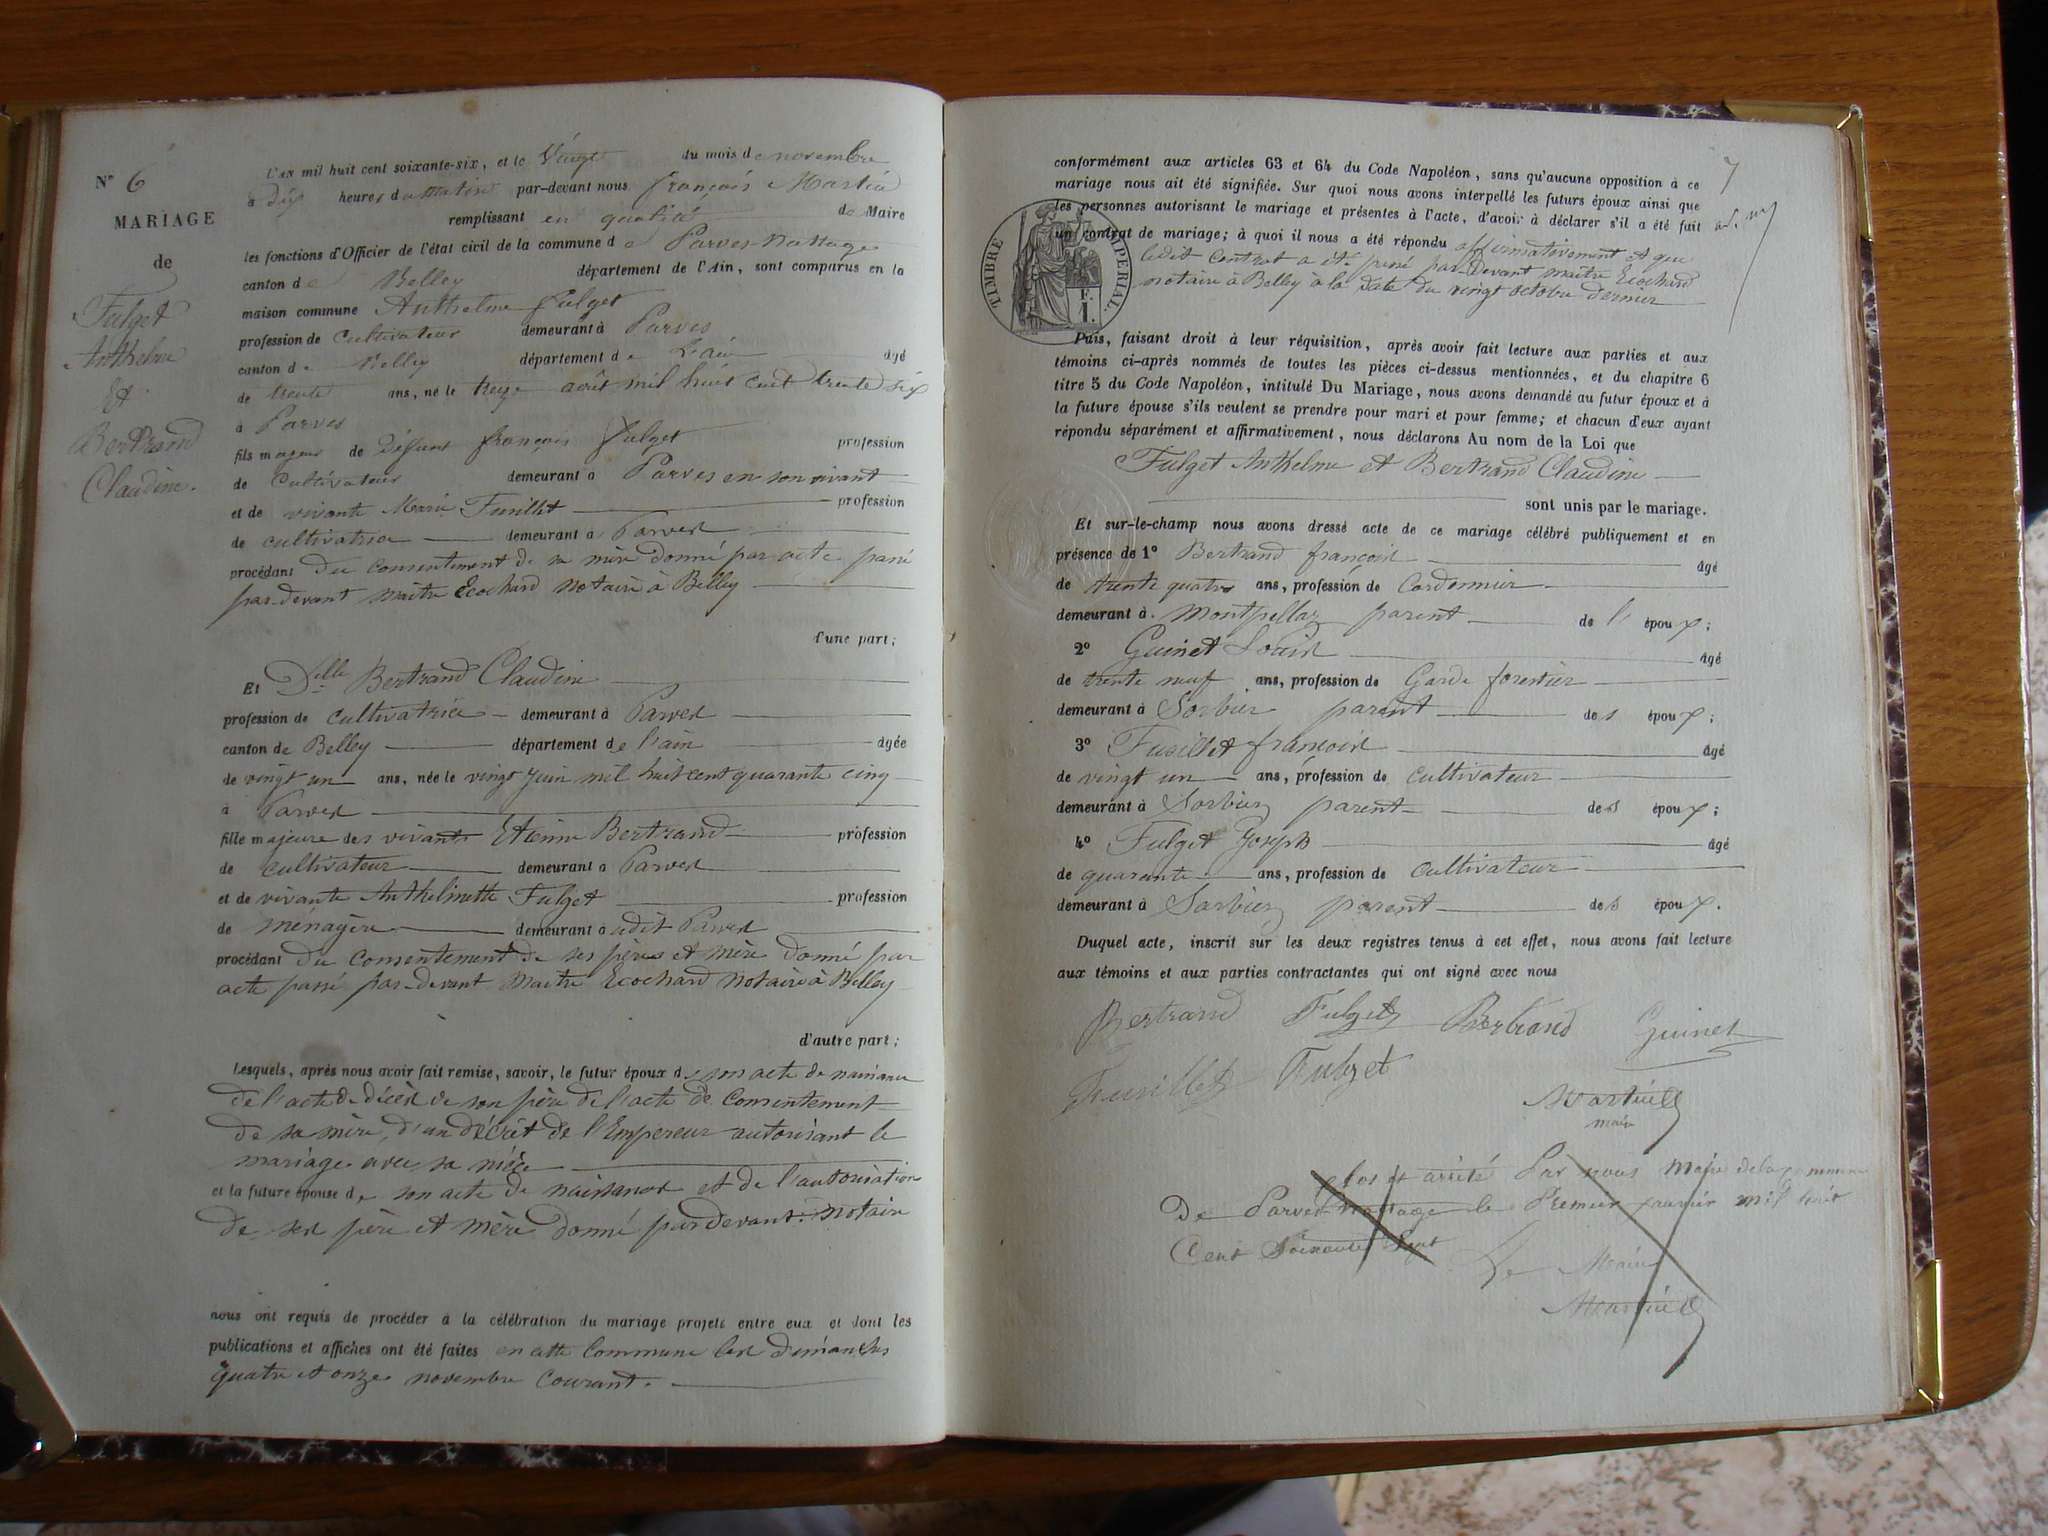 N° 6
MARIAGE
de
Fulget
Anthelme
Et
Bertrand
Claudine.
L'an mil huit cent soixante-six, et le Vingt du mois de novembre
à dix heures du Matin par-devant nous françois Martin
remplissant en qualité de Maire
les fonctions d'Officier de l'état civil de la commune de Parves-Nattages
canton de Belley département de l'Ain, sont comparus en la
maison commune Anthelme Fulget
profession de Cultivateur demeurant à Parves
canton de Belley département de L'ain âgé
de trente ans, né le treize août mil huit cent trente six
à Parves
fils majeur de Déffunt françois Fulget profession
de Cultivateur demeurant à Parves en son vivant
et de vivante Marie Fusillet profession
de cultivatrice demeurant à Parves
procédant du consentement de sa mère donné par acte passé
par-devant maitre Ecochard notaire à Belley
d'une part;
Et Dlle Bertrand Claudine
profession de cultivatrice demeurant à Parves
canton de Belley département de l'ain âgée
de vingt un ans, née le vingt juin mil huit cent quarante cinq
à Parves
fille majeure des vivants Etienne Bertrand profession
de cultivateur demeurant à Parves
et de vivante Anthelmette Fulget profession
de ménagère demeurant à udit Parves
procédant du consentement de ses pères et mère donné par
acte passé par-devant Maitre Ecochard notaire à Belley
d'autre part;
Lesquels, après nous avoir fait remise, savoir, le futur époux de son acte de naissance
de l'acte de décès de son père de l'acte de consentement
de sa mère, d'un décret de l'Empereur autorisant le
mariage avec sa nièce
et la future épouse de son acte de naissance et de l'autorisation
de ses père et mère donné par devant notaire
nous ont requis de procéder à la célébration du mariage projeté entre eux et dont les
publications et affiches ont été faites en cette Commune les dimanches
quatre et onze novembre courant.
7
conformément aux articles 63 et 64 du Code Napoléon, sans qu'aucune opposition à ce
mariage nous ait été signifiée. Sur quoi nous avons interpellé les futurs époux ainsi que
les personnes autorisant le mariage et présentes à l'acte, d'avoir à déclarer s'il a été fait
un contrat de mariage; à quoi il nous a été répondu affirmativement et que
ledit contrat a été passé par-devant maitre Ecochard
notaire à Belley à la date du vingt octobre dernier
TIMBRE IMPERIAL.
F.
1.
Puis, faisant droit à leur réquisition, après avoir fait lecture aux parties et aux
témoins ci-après nommés de toutes les pièces ci-dessus mentionnées, et du chapitre 6
titre 5 du Code Napoléon, intitulé Du Mariage, nous avons demandé au futur époux et à
la future épouse s'ils veulent se prendre pour mari et pour femme; et chacun d'eux ayant
répondu séparément et affirmativement, nous déclarons Au nom de la Loi que
Fulget Anthelme et Bertrand Claudine
sont unis par le mariage.
Et sur-le-champ nous avons dressé acte de ce mariage célébré publiquement et en
présence de 1° Bertrand françois âgé
de trente quatre ans, profession de Cordonnier
demeurant à Montpellaz parent de l' époux;
2° Guinet Louis âgé
de trente neuf ans, profession de Garde forestier
demeurant à Sorbier parent des époux;
3° Fusillet françois âgé
de vingt un ans, profession de cultivateur
demeurant à Sorbier parent des époux;
4° Fulget Joseph âgé
de quarante ans, profession de cultivateur
demeurant à Sorbier parent des époux.
Duquel acte, inscrit sur les deux registres tenus à cet effet, nous avons fait lecture
aux témoins et aux parties contractantes qui ont signé avec nous
Bertrand Fulget Bertrand Guinet
Fusillet Fulget
Martin
maire
Clos et arrêté Par nous Maire de la commune
De Parves-Nattages le Premier janvier mil huit
Cent Soixante Sept
Le Maire
Martin